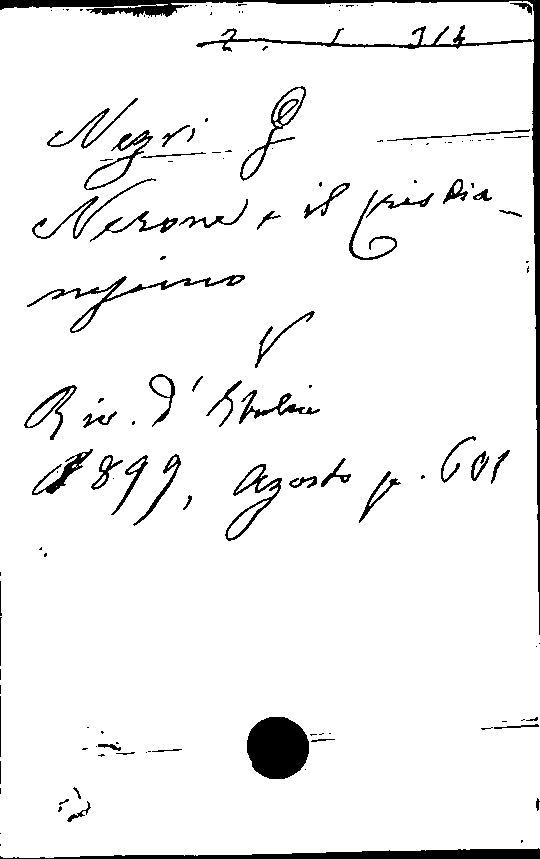 2. 1 314
Negri G
Nerone e il cristia-
nesimo
V
Riv. d'Italia
1899, Agosto p. 601